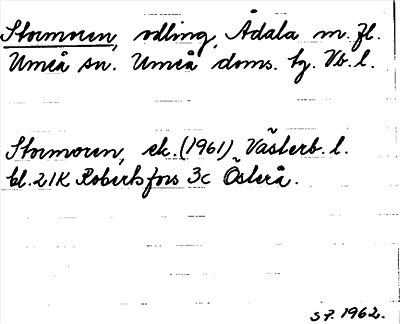 Stormoren, odling, Ådala m.fl.
Umeå sn. Umeå doms. hg. Vb. l.
Stormoren, ek. (1961) Västerb. l.
bl. 21K Robertsfors 3c Österå.
S.F. 1962.